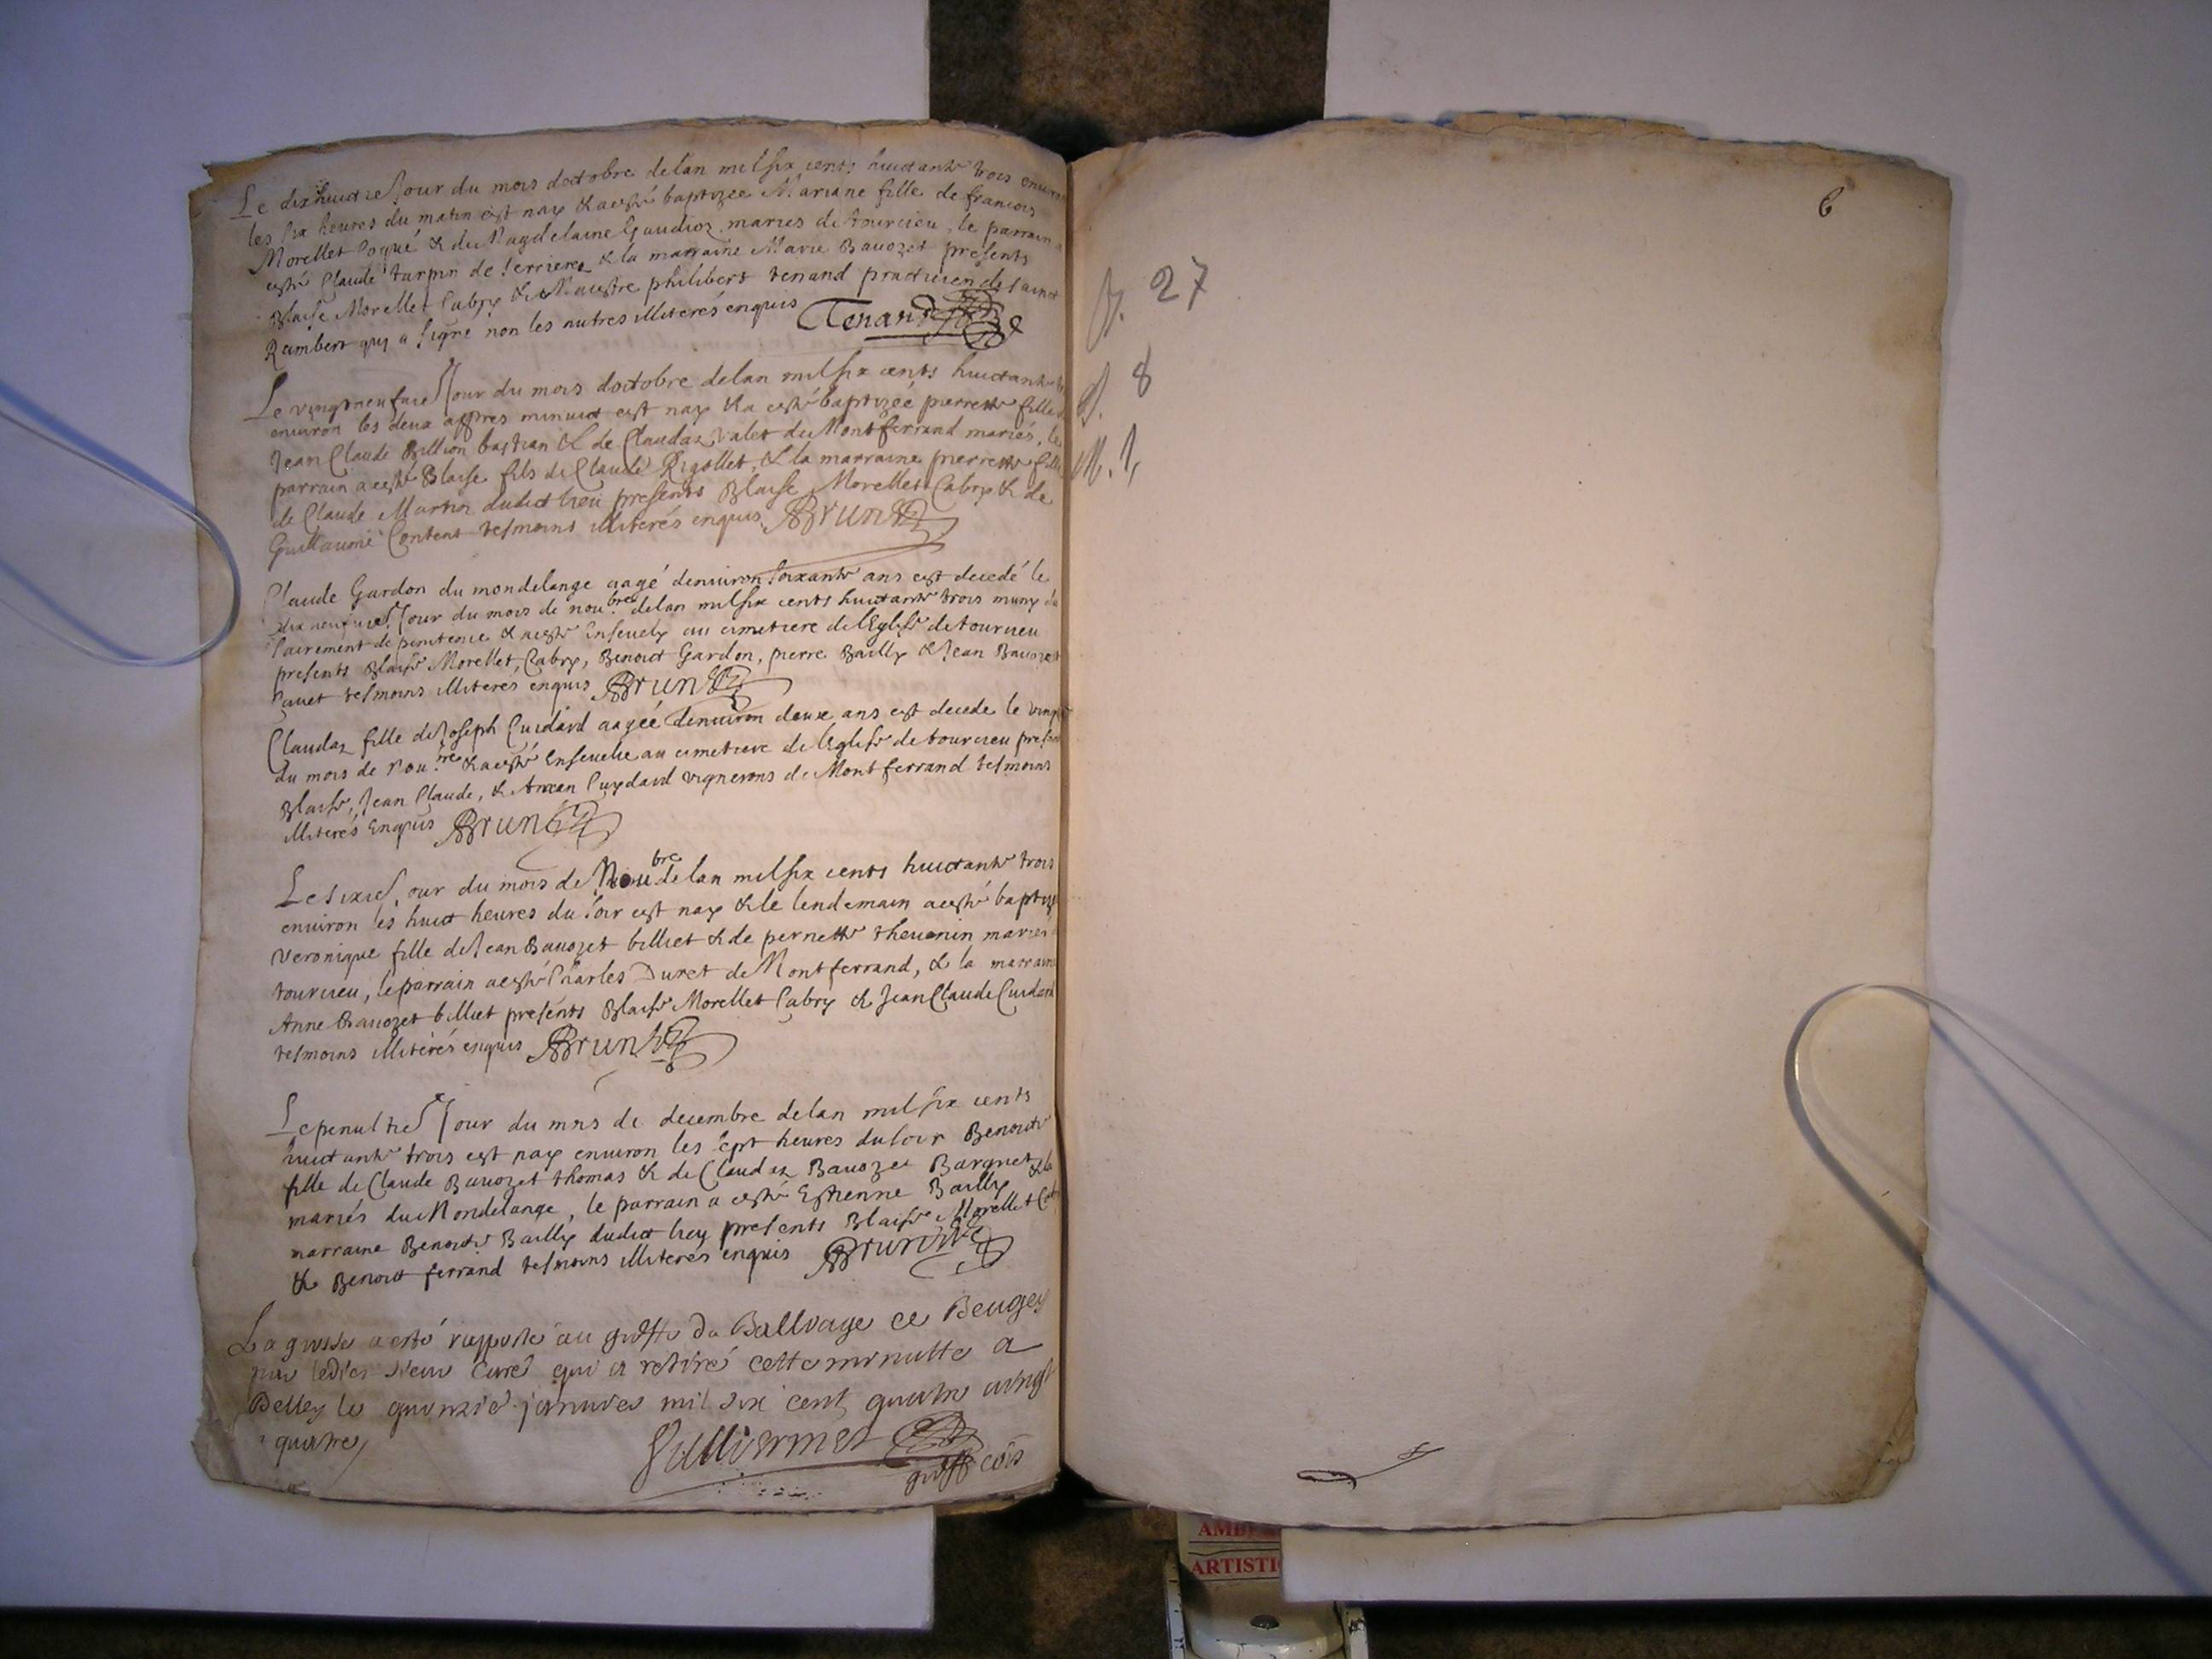 Le dixhuictie Jour du mois doctobre delan mil six cents huictante trois
les six heures du matin est nay & a esté baptizée Mariane fille de francois
Morellet & de Magdelaine Gaudioz maries de tourcieu, le parrain a
esté Claude turpin de & la marraine Marie Bauozet presents
Blaise Morellet Cabry & Maistre philibert tenand practicien de sainct
Rambert quy a signé non les autres illiterés enquis Tenand
Le vingtneufuie Jour du mois doctobre delan mil six cents huictante
enuiron les deux appres minuict est nay & a esté baptizée pierrette fille
Jean Claude Billion bastian & de Claudaz Valet du Montferrand mariés, le
parrain a esté Blaise fils de Claude Rigollet, & la marraine pierrette fille
de Claude Martin dudict lieu presents Blaise Morellet Cabry & de
Guillaume Content tesmoins illiterés enquis Brun
Claude Gardon du mondelange aagé denuiron soixante ans est decedé le
dixneufuie Jour du mois de nou.bre delan mil six cents huictante trois muny du
sacrement de penitence & a esté Enseuely au cimetiere de lEglise de tourcieu
presents Blaise Morellet, Cabry, Benoict Gardon, pierre Bailly & Jean Bauozet
tesmoins illiterés enquis Brun
Claudaz fille de Joseph Cuidard aagée denuiron deux ans est decede le vingt
du mois de Nou.bre & a esté Enseuelie au cimetiere de lEglise de tourcieu
Blaise, Jean Claude, & Cuydard vignerons de Montferrand tesmoins
illiterés Enquis Brun
Le sixie Jour du mois de Noubre delan mil six cents huictante trois
enuiron les huict heures du soir est nay & le lendemain a esté baptizé
Veronique fille de Jean Bauozet billiet & de pernette theuenin mariés
tourcieu, le parrain a esté Charles Duret de Montferrand, & la marraine
Anne Bauozet billiet presents Blaise Morellet Cabry & Jean Claude Cuidard
tesmoins illiterés enquis Brun
Le penultie Jour du mois de decembre delan mil six cents
huictante trois est nay enuiron les sept heures du soir Benoite
fille de Claude Bauozet thomas & de Claudaz Bauozet Bargnet
mariés du Mondelange, le parrain a esté Estienne Bailly & la
marraine Benoite Bailly dudict lieu presents Blaise Morellet
& Benoict ferrand tesmoins illiterés enquis Brun
La grosse a esté rapporté au greffe du Balliage de Beugey
par ledict sieur Curé qui a retiré cette minutte a
Belley le quinzie januier mil six cent quatre vingt
quatre
Gulliermet
greff cõis
6
27
8
M. 1,
AMB
ARTISTI